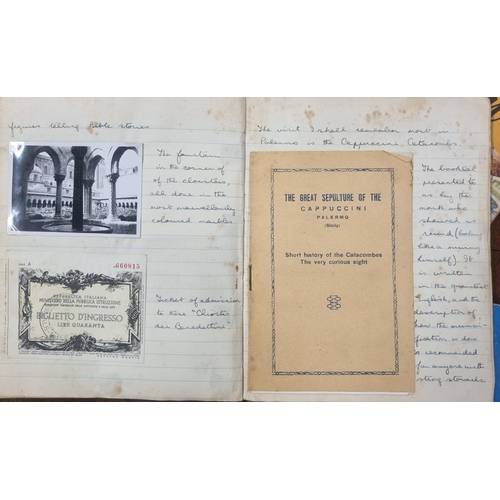 figures telling Bible stories
The fountain
in the corner of
of the cloisters,
all done in the
most marvellously
coloured marbles
SERIE A
No 660915
REPUBBLICA ITALIANA
MINISTERO DELLA PUBBLICA ISTRUZIONE
BIGLIETTO D'INGRESSO
LIRE QUARANTA
Ticket of admission
to see "Chiostro
dei Benedettini"
The visit I shall remember most in
Palermo is the Cappuccini Catacombs
THE GREAT SEPULTURE OF THE
CAPPUCCINI
PALERMO
(Sicily)
Short history of the Catacombes
The very curious sight
The booklet
presented to
us by the
monk who
showed us
round (looking
like a mummy
himself). It
is written
in the quaintest
English, and the
description of
how the mummi-
fication is done
is recommended
for anyone with
strong stomachs.